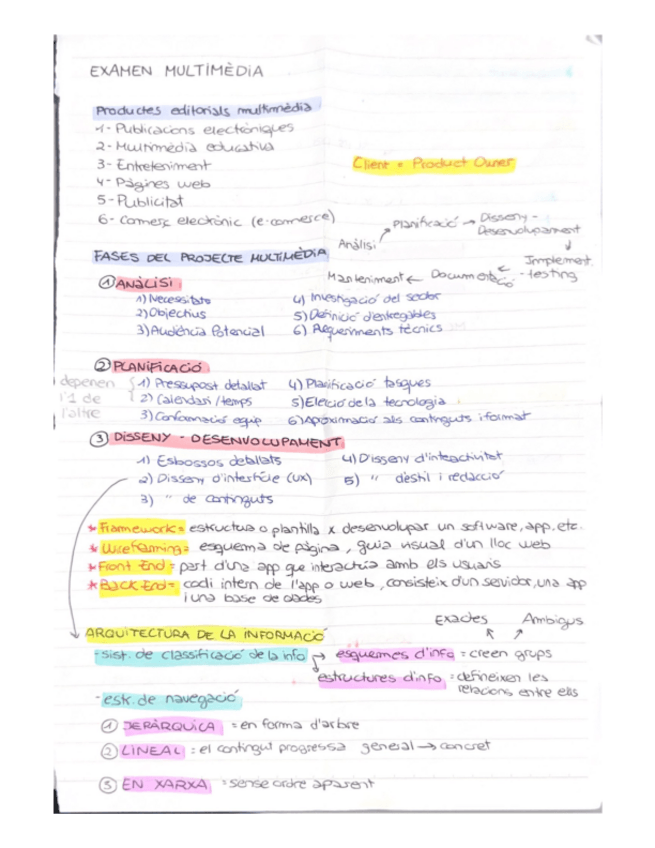 EXAMEN MULTIMÈDIA
Productes editorials multimèdia
1- Publicacions electròniques
2- Multimèdia educativa
3- Entreteniment
4- Pàgines web
5- Publicitat
6- Comerç electrònic (e-commerce)
Client = Product Owner
FASES DEL PROJECTE MULTIMÈDIA
Anàlisi ↗ Planificació → Disseny - Desenvolupament
↓
Implement. - testing
Manteniment ← Documentació ←
① ANÀLISI
1) Necessitats
2) Objectius
3) Audiència Potencial
4) Investigació del sector
5) Definició d'entregables
6) Requeriments tècnics
② PLANIFICACIÓ
depenen l'1 de l'altre {
1) Pressupost detallat
2) Calendari / temps
3) Conformació equip
4) Planificació tasques
5) Elecció de la tecnologia
6) Aproximació als continguts i format
③ DISSENY - DESENVOLUPAMENT
1) Esbossos detallats
2) Disseny d'interfície (UX)
3) " de continguts
4) Disseny d'interactivitat
5) " d'estil i redacció
* Framework = estructura o plantilla x desenvolupar un software, app, etc.
* Wireframing = esquema de pàgina, guia visual d'un lloc web
* Front End = part d'una app que interactua amb els usuaris
* Back End = codi intern de l'app o web, consisteix d'un servidor, una app
i una base de dades
Exactes Ambigus
↖ ↗
ARQUITECTURA DE LA INFORMACIÓ
- sist. de classificació de la info → esquemes d'info = creen grups
↳ estructures d'info = defineixen les
relacions entre ells
- estr. de navegació
① JERÀRQUICA = en forma d'arbre
② LINEAL = el contingut progressa general → concret
③ EN XARXA = sense ordre aparent